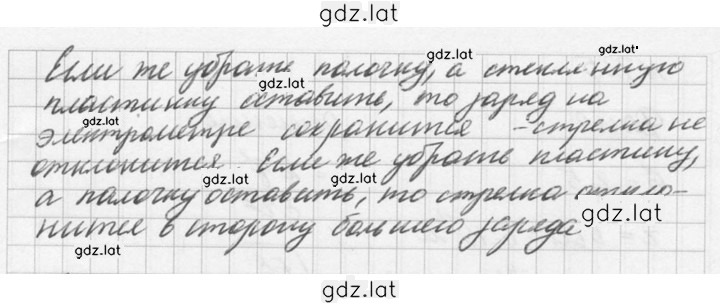 gdz.lat
Если же убрать палочку, а стеклянную
gdz.lat
gdz.lat
gdz.lat
пластинку оставить, то заряд на
gdz.lat
электрометре сохранится - стрелка не
отклонится. Если же убрать пластину,
gdz.lat
gdz.lat
а палочку оставить, то стрелка откло-
gdz.lat
нится в сторону большего заряда
gdz.lat
gdz.lat